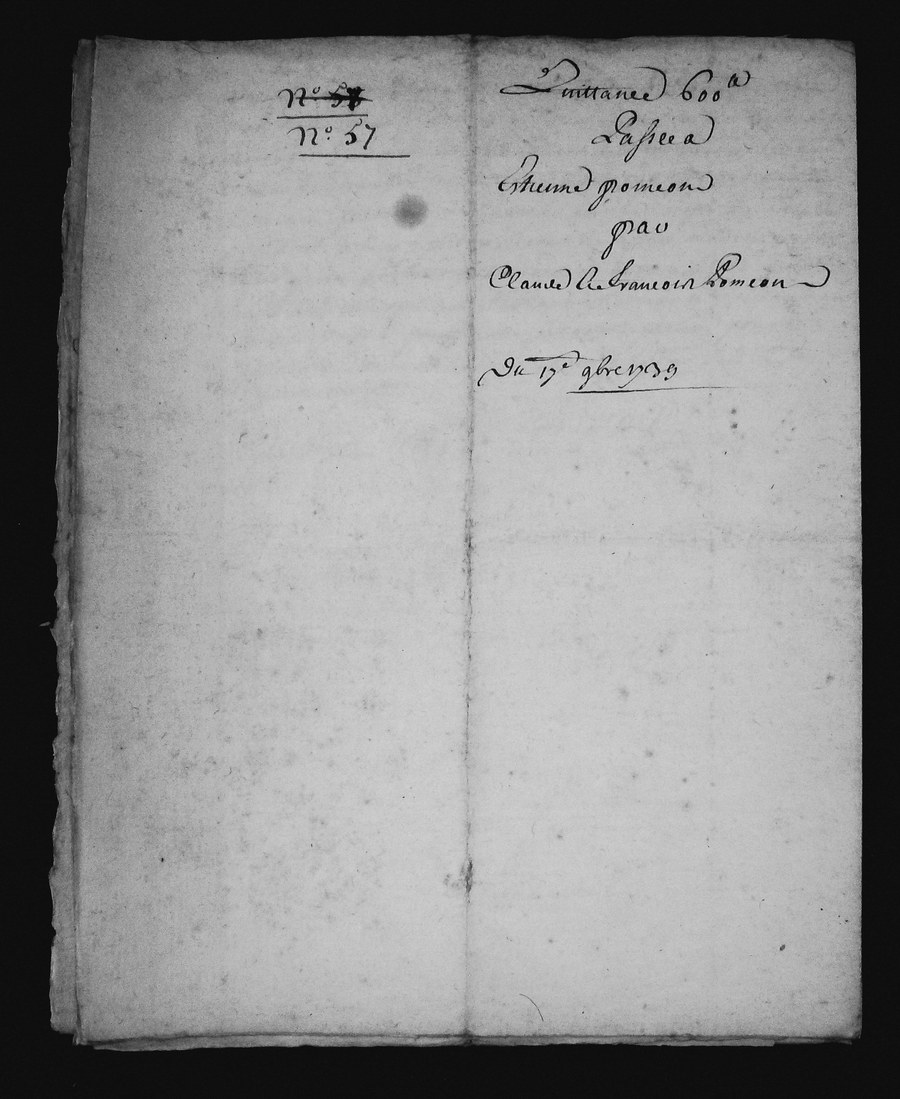 N.o 58
N.o 57
Quittance 600ll
Passée a
Estienne pomeon
par
Claude & francois Pomeon
Du 17e 9bre 1739